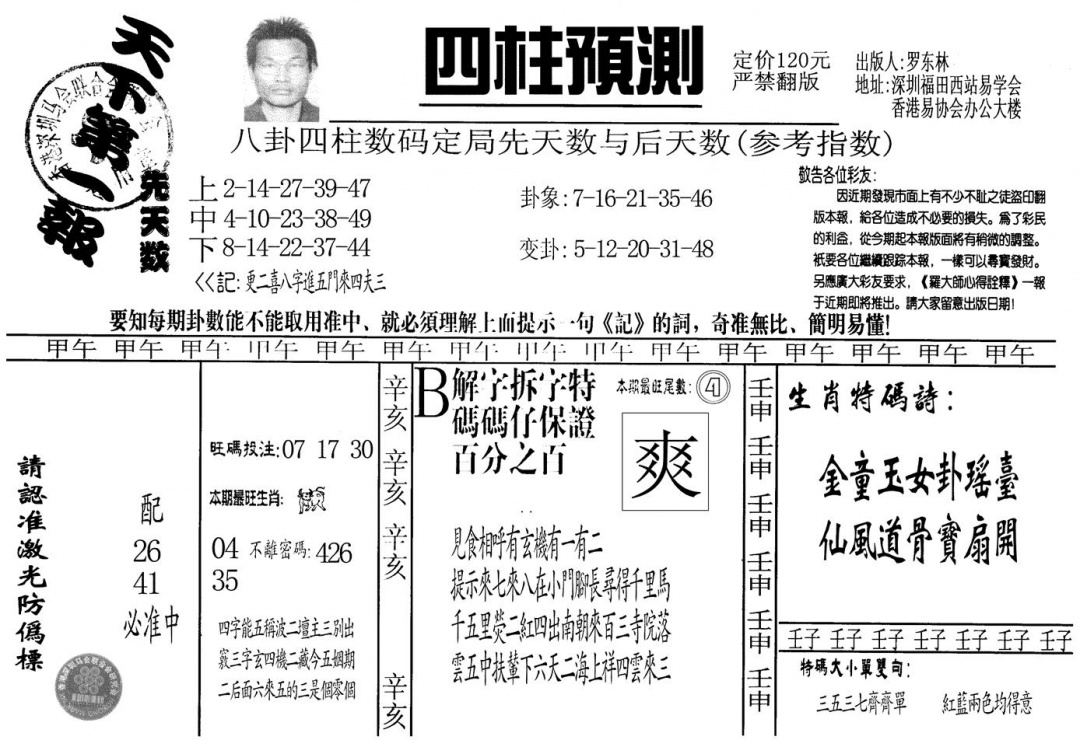 天下第一報
四柱預測
定价120元
严禁翻版
出版人:罗东林
地址:深圳福田西站易学会
香港易协会办公大楼
八卦四柱数码定局先天数与后天数(参考指数)
先天数
上2-14-27-39-47
中4-10-23-38-49
下8-14-22-37-44
卦象:7-16-21-35-46
变卦:5-12-20-31-48
<<記:更二喜八字進五門來四夫三
敬告各位彩友:
因近期發現市面上有不少不耻之徒盜印翻
版本報，給各位造成不必要的損失。為了彩民
的利益，從今期起本報版面將有稍微的調整。
衹要各位繼續跟踪本報，一樣可以尋寶發財。
另應廣大彩友要求，《羅大師心得詮釋》一報
于近期即將推出。請大家留意出版日期!
要知每期卦數能不能取用准中、就必須理解上面提示一句《記》的詞，奇准無比、簡明易懂!
甲午 甲午 甲午 甲午 甲午 甲午 甲午 甲午 甲午 甲午 甲午 甲午 甲午 甲午 甲午
請認准激光防僞標
配
26
41
必准中
旺碼投注:07 17 30
本期最旺生肖:
04 不離密碼:426
35
四字能五稱波二壇主三别出
竅三字玄四機二藏今五姻期
二后面六來五的三是個零個
辛亥
辛亥
辛亥
辛亥
B解字拆字特
碼碼仔保證
百分之百
本期最旺尾數:
爽
見食相呼有玄機有一有二
提示來七來八在小門腳長尋得千里馬
千五里熒二紅四出南朝來百三寺院落
雲五中扶輦下六天二海上祥四雲來三
壬申
壬申
壬申
壬申
壬申
壬申
生肖特碼詩:
金童玉女卦瑶臺
仙風道骨寶扇開
壬子 壬子 壬子 壬子 壬子 壬子 壬子
特碼大小單雙句:
三五三七齊齊單 紅藍兩色均得意